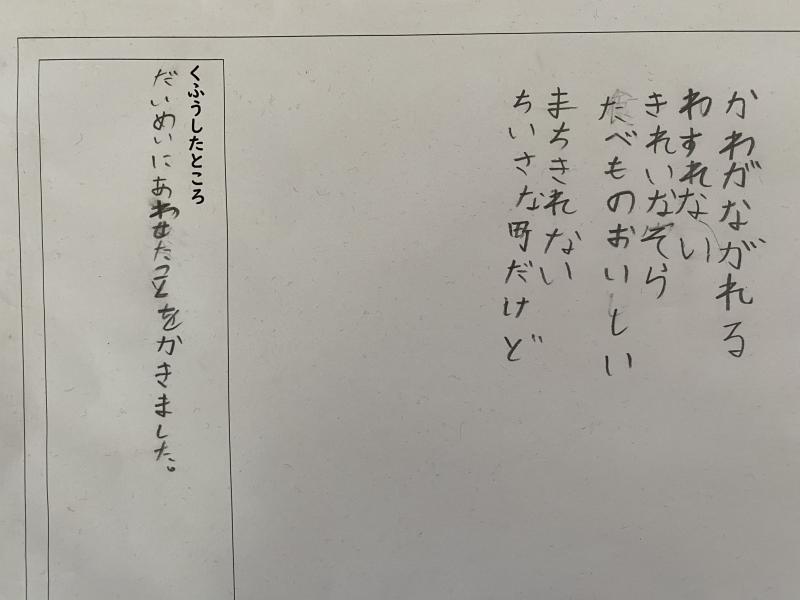 かわがながれる
わすれない
きれいなそら
たべものおいしい
まちきれない
ちいさな町だけど
くふうしたところ
だいめいにあわせたことをかきました。